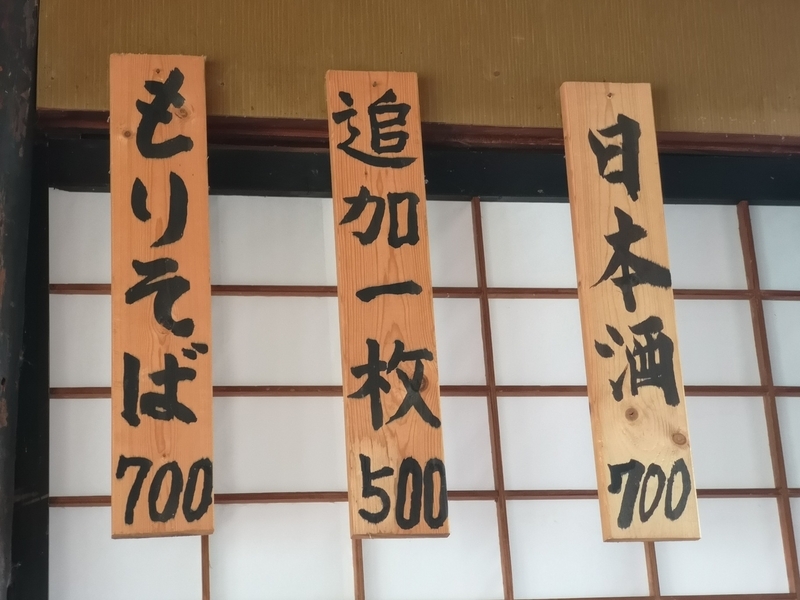 もりそば
700
追加一枚
500
日本酒
700